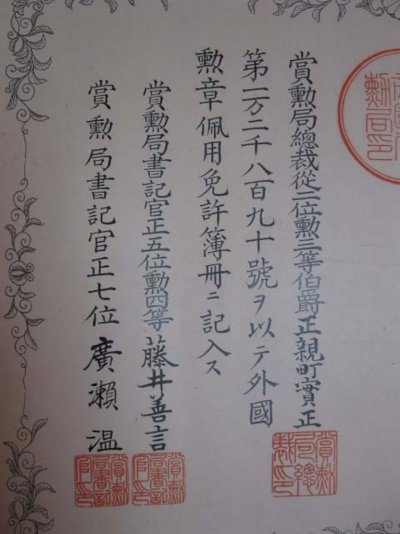 賞勲局總裁從二位勲三等伯爵正親町實正
第一万二千八百九十號ヲ以テ外國
勲章佩用免許簿冊ニ記入ス
賞勲局書記官正五位勲四等藤井善言
賞勲局書記官正七位廣瀬温
賞勲局總裁印